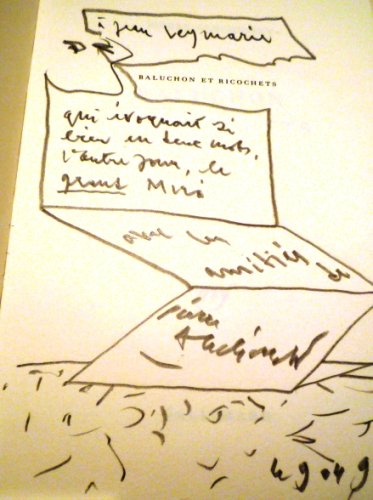 à Jean Leymarie
BALUCHON ET RICOCHETS
qui évoquait si
bien en deux mots,
l'autre jour, le
grand Miró
avec les
amitiés de
Pierre
Alechinsky
le 9 04